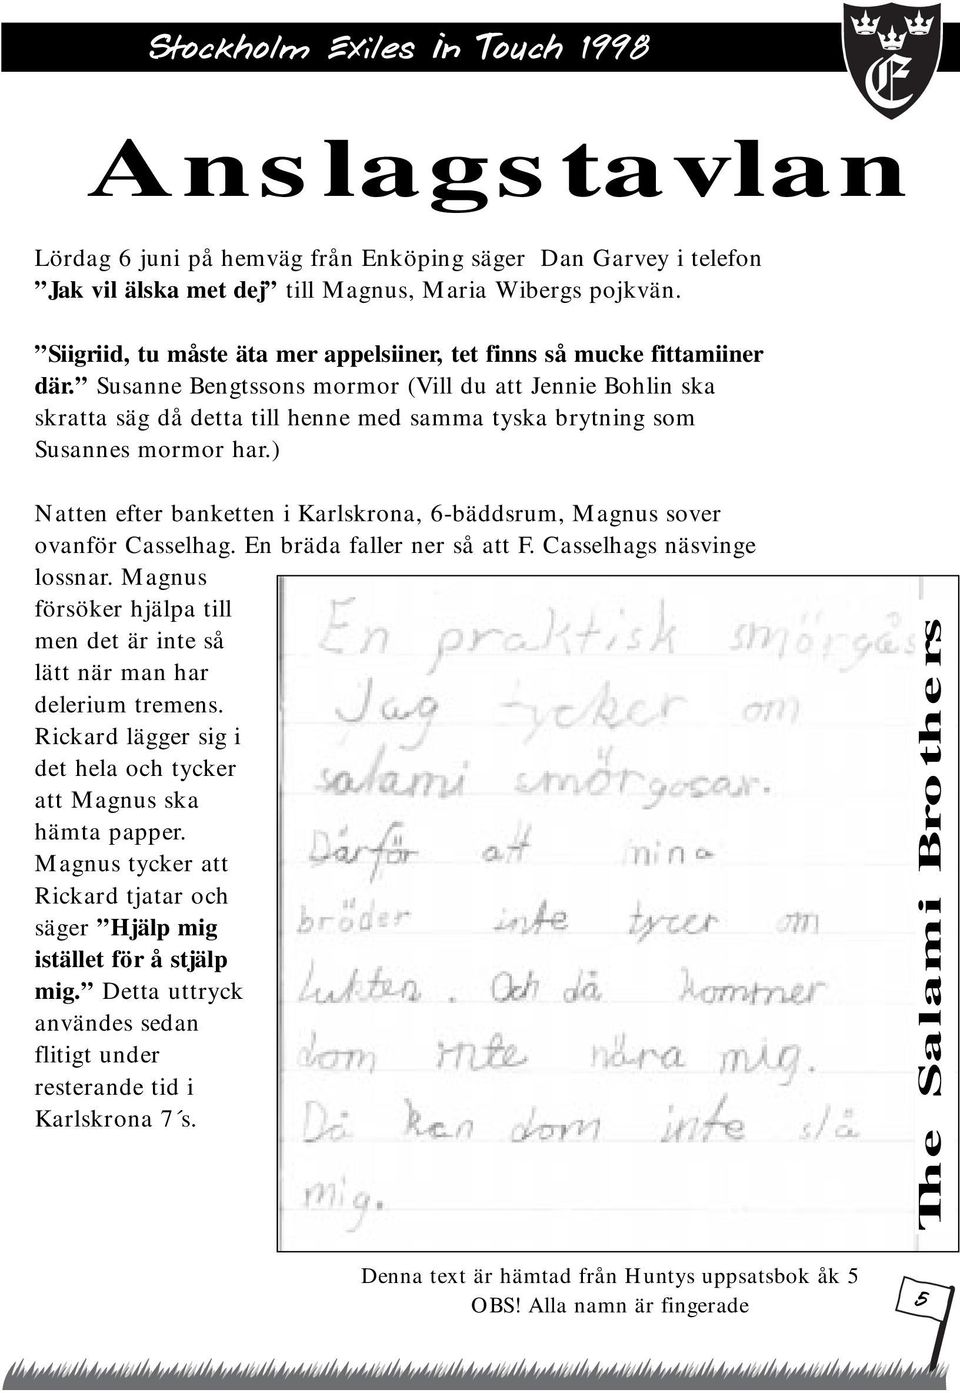 Stockholm Exiles in Touch 1998
E
Anslagstavlan
Lördag 6 juni på hemväg från Enköping säger Dan Garvey i telefon
”Jak vil älska met dej” till Magnus, Maria Wibergs pojkvän.
”Siigriid, tu måste äta mer appelsiiner, tet finns så mucke fittamiiner
där.” Susanne Bengtssons mormor (Vill du att Jennie Bohlin ska
skratta säg då detta till henne med samma tyska brytning som
Susannes mormor har.)
Natten efter banketten i Karlskrona, 6-bäddsrum, Magnus sover
ovanför Casselhag. En bräda faller ner så att F. Casselhags näsvinge
lossnar. Magnus
försöker hjälpa till
men det är inte så
lätt när man har
delerium tremens.
Rickard lägger sig i
det hela och tycker
att Magnus ska
hämta papper.
Magnus tycker att
Rickard tjatar och
säger ”Hjälp mig
istället för å stjälp
mig.” Detta uttryck
användes sedan
flitigt under
resterande tid i
Karlskrona 7´s.
En praktisk smörgås
Jag tycker om
salami smörgosar.
Därför att mina
bröder inte tycer om
lukten. Och då kommer
dom inte nära mig.
Då kan dom inte slå
mig.
The Salami Brothers
Denna text är hämtad från Huntys uppsatsbok åk 5
OBS! Alla namn är fingerade
5